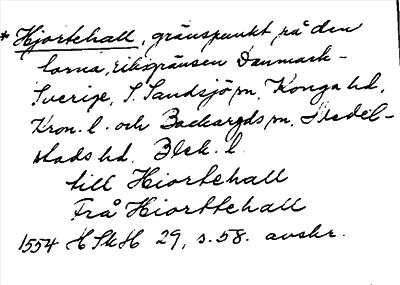 * Hjortehall, gränspunkt på den
forna, riksgränsen Danmark-
Sverige, S. Sandsjö sn, Konga hd,
Kron. l. och Backaryds sn, Medel-
stads hd. Blek. l.
till Hiortehall
Frå Hiorttehall
1554 HSkH 29, s. 58. avskr.